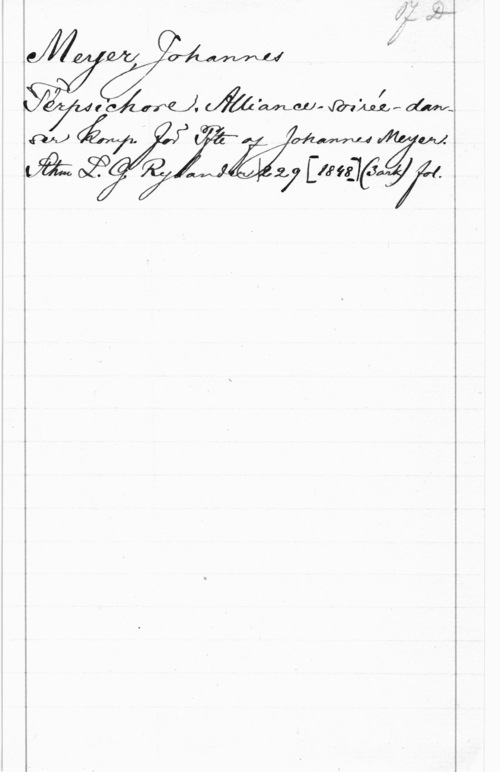 Pf D
Meyer, Johannes
Terpsichore. Alliance-soirée-dan-
ser komp. för Pfte af Johannes Meyer.
Sthm L. G. Rylander 29 [1848] (3 ark) fol.